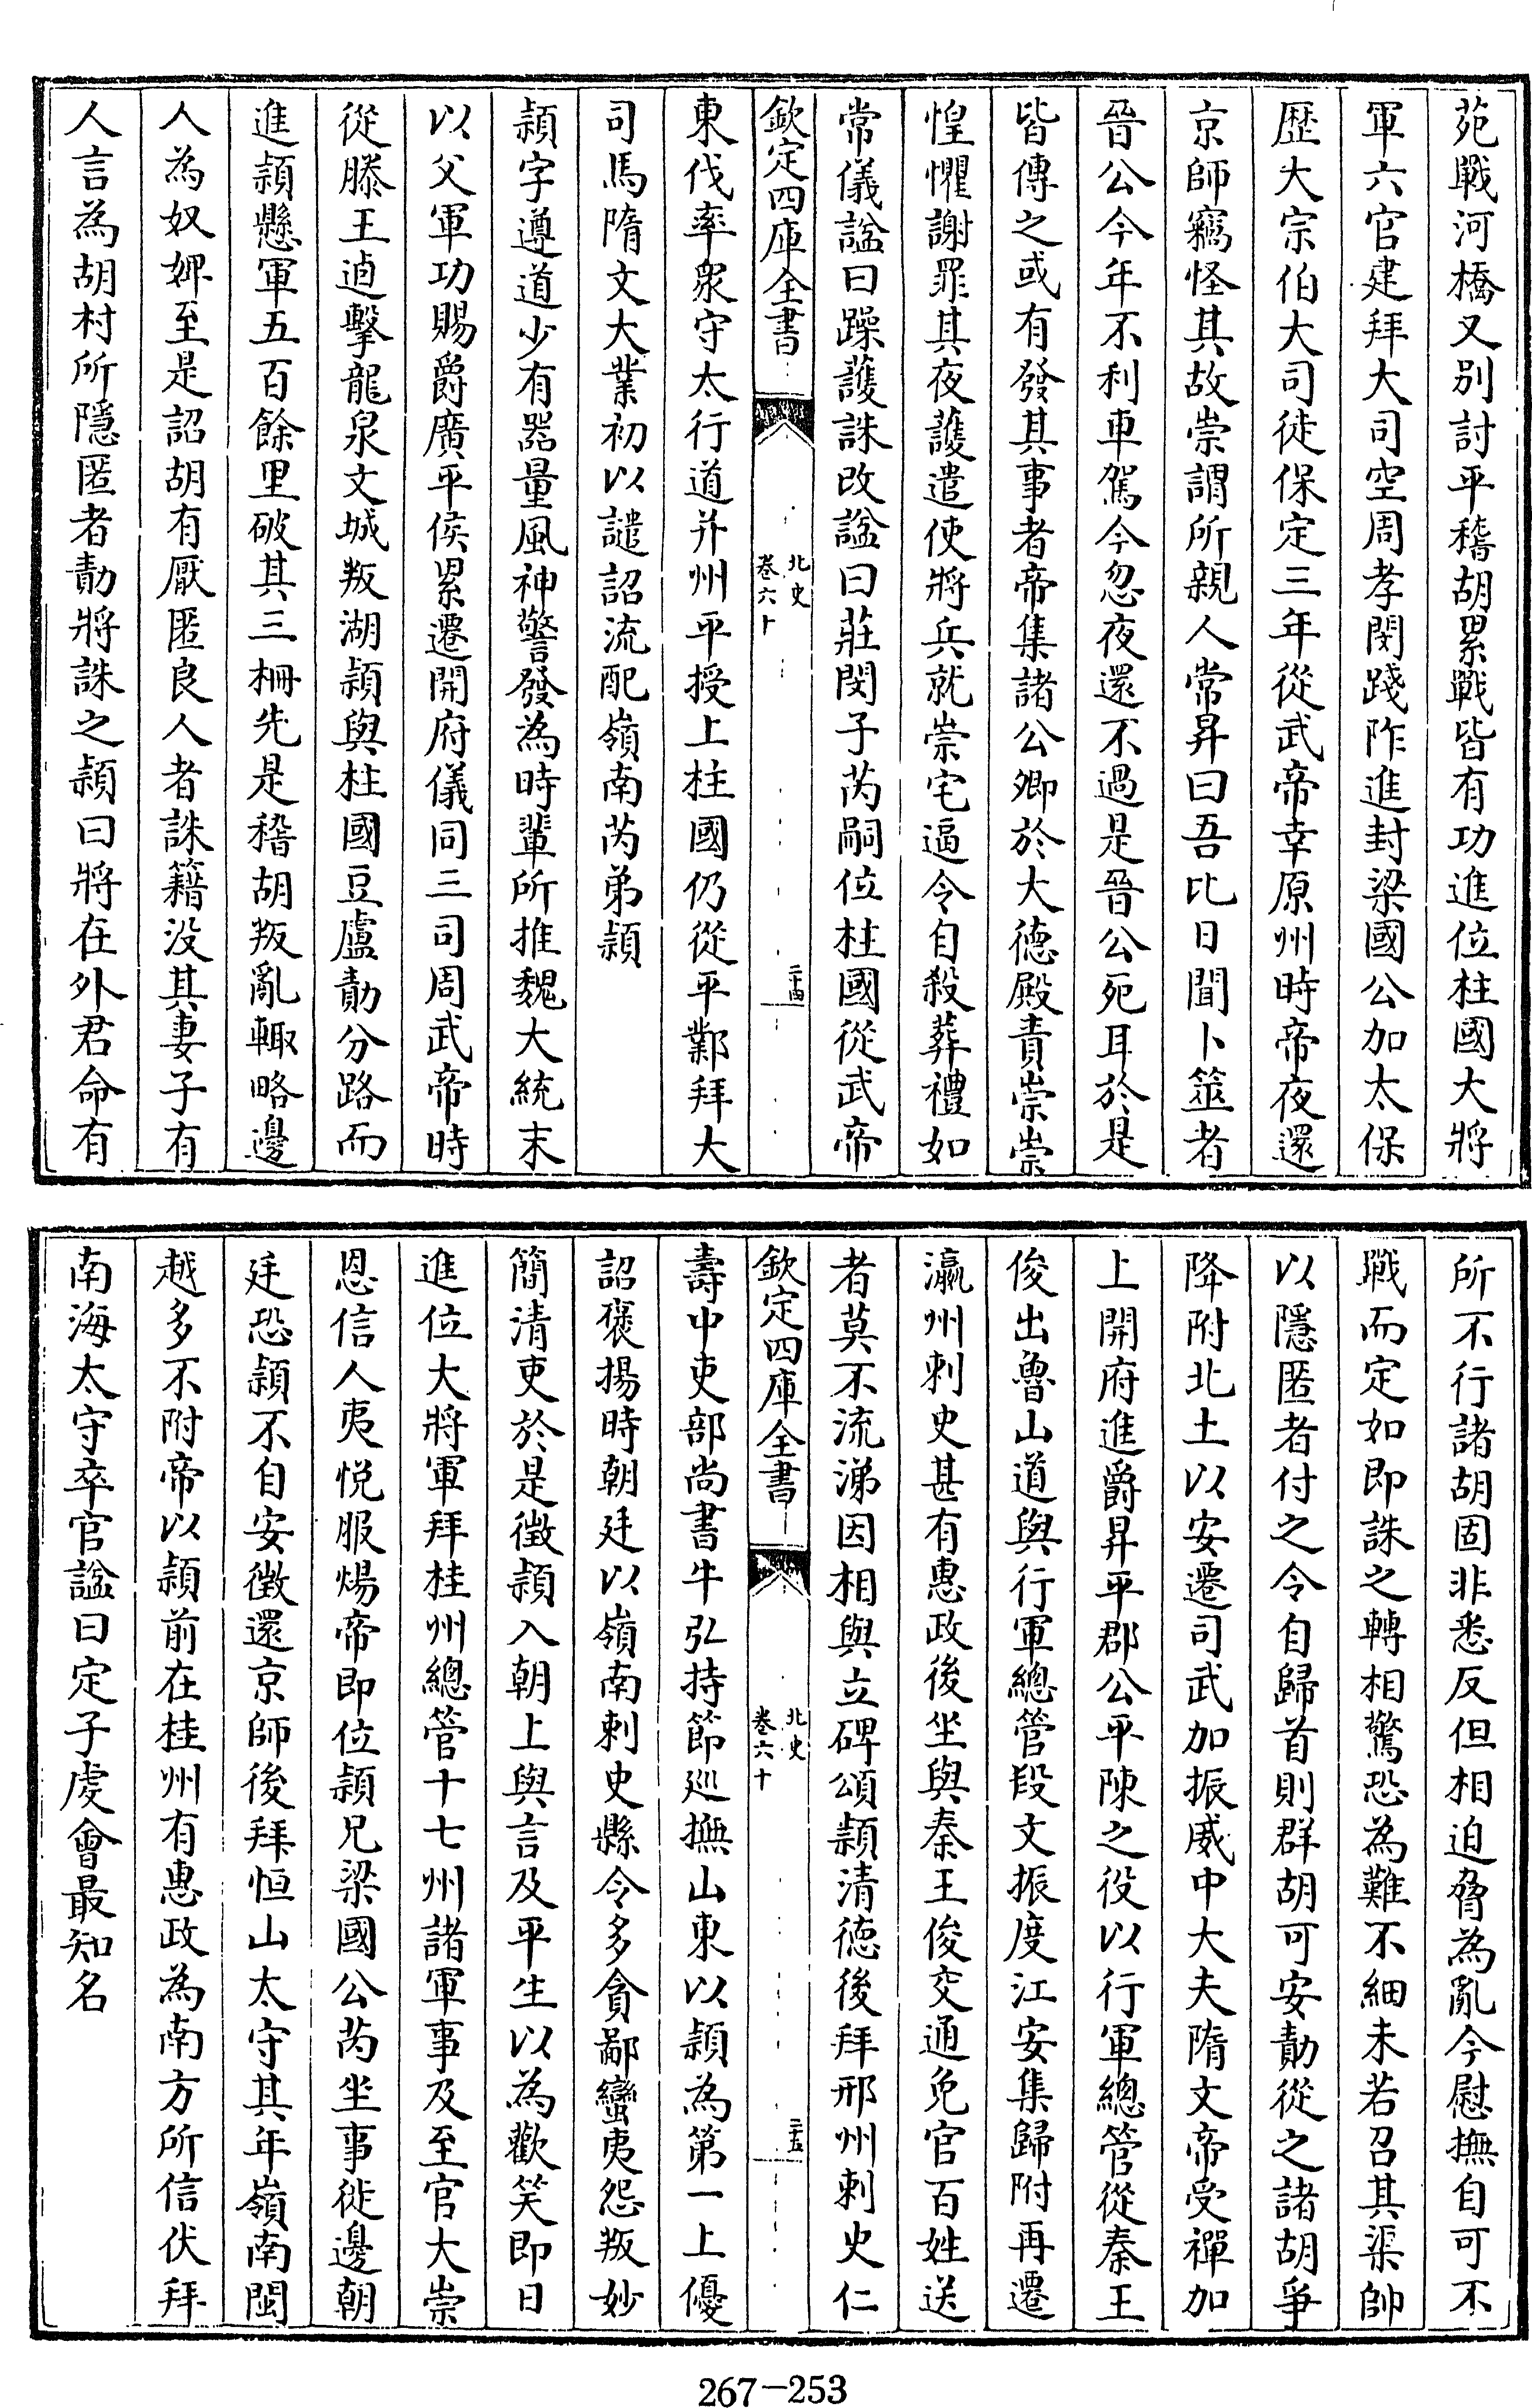 苑戰河橋又別討平稽胡累戰皆有功進位柱國大將
軍六官建拜大司空周孝閔踐阼進封梁國公加太保
歴大宗伯大司徒保定三年從武帝幸原州時帝夜還
京師竊怪其故崇謂所親人常昇曰吾比日聞卜筮者
晉公今年不利車駕今忽夜還不過是晉公死耳於是
皆傳之或有發其事者帝集諸公卿於大德殿責崇崇
惶懼謝罪其夜護遣使將兵就崇宅逼令自殺葬禮如
常儀諡曰躁護誅改諡曰莊閔子芮嗣位柱國從武帝
欽定四庫全書
北史
卷六十
二十四
東伐率衆守太行道并州平授上柱國仍從平鄴拜大
司馬隋文大業初以譴詔流配嶺南芮弟頴
頴字遵道少有器量風神警發為時輩所推魏大統末
以父軍功賜爵廣平侯累遷開府儀同三司周武帝時
從滕王逌擊龍泉文城叛湖頴與柱國豆盧勣分路而
進頴懸軍五百餘里破其三柵先是稽胡叛亂輙略邊
人為奴婢至是詔胡有厭匿良人者誅籍没其妻子有
人言為胡村所隱匿者勣將誅之頴曰將在外君命有
所不行諸胡固非悉反但相迫脅為亂今慰撫自可不
戰而定如即誅之轉相驚恐為難不細未若召其渠帥
以隱匿者付之令自歸首則群胡可安勣從之諸胡爭
降附北土以安遷司武加振威中大夫隋文帝受禪加
上開府進爵昇平郡公平陳之役以行軍總管從秦王
俊出魯山道與行軍總管段文振度江安集歸附再遷
瀛州刺史甚有惠政後坐與秦王俊交通免官百姓送
者莫不流涕因相與立碑頌頴清德後拜邢州刺史仁
欽定四庫全書
北史
卷六十
二十五
壽中吏部尚書牛弘持節巡撫山東以頴為第一上優
詔褒揚時朝廷以嶺南刺史縣令多貪鄙蠻夷怨叛妙
簡清吏於是徵頴入朝上與言及平生以為歡笑即日
進位大將軍拜桂州總管十七州諸軍事及至官大崇
恩信人夷悦服煬帝即位頴兄梁國公芮坐事徙邊朝
廷恐頴不自安徵還京師後拜恒山太守其年嶺南閩
越多不附帝以頴前在桂州有惠政為南方所信伏拜
南海太守卒官諡曰定子虔會最知名
267-253